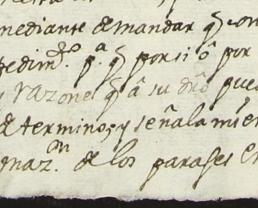 mediante demandar q con
pedim.to p.a q por si ô por
razones q â su dro pue
de terminos y señalamien
naz.n de los parajes en